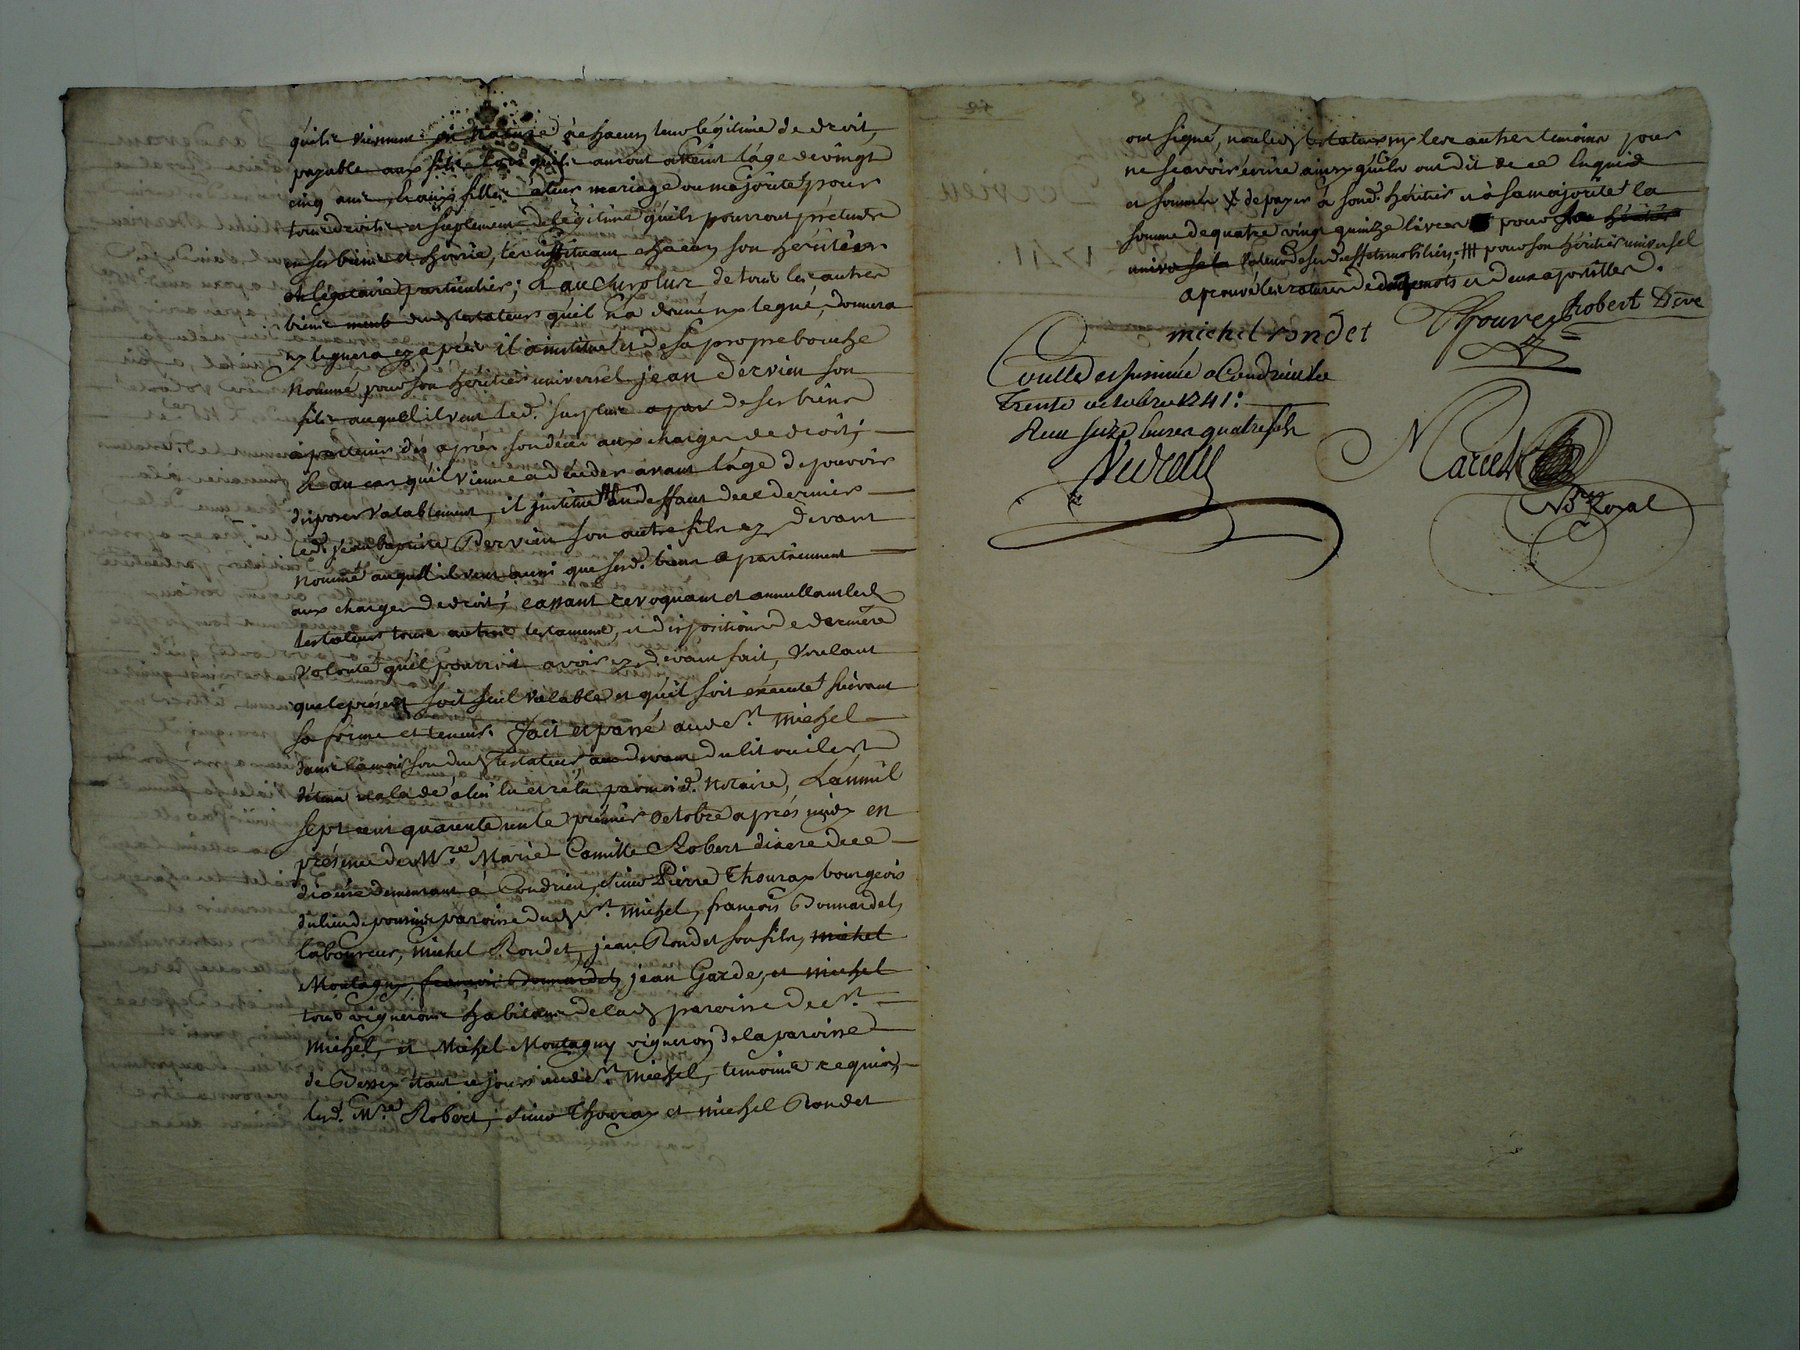 qu'ils viennent a chacun leur légitime de droit,
payable aux fils lors qu'ils auront atteint l'age de vingt
cinq ans, & aux filles à leur mariage ou majorité pour
tous droits et suplement de légitime qu'ils pourront prétendre
en ses biens et hoirie, les instituant chacun son héritier
et légataire particulier; & au surplus de tous les autres
biens meub dud testateur qu'il n'a donné ny legué, donnera
ny leguera cy après il a institué et de sa propre bouche
nommé pour son héritier universel jean dervieu son
fils auquel il veut led. surplus de ses biens
apartenir dès après son décès aux charges de droit;
& au cas qu'il vienne a décéder avant l'age de pouvoir
disposer valablement, il institue au deffaut de ce dernier
led. jean baptiste Dervieu son autre fils cy devant
nommé auquel il veut aussi que sesd. biens apartiennent
aux charges de droit; cassant revoquant et annullant led
testateur tous autres testament, et dispositions de dernière
volonté qu'il pourroit avoir cy devant fait, voulant
que le présent soit seul valable et qu'il soit éxécuté suivant
sa forme et teneur. fait et passé aud st. michel
dans la maison dud testateur, au devant du lit ou il est
détenu malade à lui lu et relu par moid. notaire, L'an mil
sept cent quarente un le premier octobre après midy en
présence de Mre Marie Camille Robert diacre de ce
diocése demeurant à Condrieu, sieur Pierre Thouray bourgeois
du lieu de paroisse dud St. michel, françois Bonnardel,
laboureur, michel Rondet, jean Rondet son fils, michel
Montagny, françois Bonnardel, jean Garde, et michel
tous vignerons habitans de lad paroisse de St.
michel, et Michel Montagny vigneron de la paroisse
de étant ce jour aud St. michel, temoins requis,
lesd. Mre. Robert, sieur Thouray et michel Rondet
ont signé, non led testateur ny les autres temoins pour
ne sçavoir écrire ainsy qu'ils ont dit de ce enquis
et sommés & de payer à sond. héritier et à sa majorité la
somme de quatre vingt quinze livres pour son héritier
universel valeur de sesd. effets mobiliers. pour son héritier universel
aprouvé les ratures de mots et deux apostilles.
michel rondet
Thouray
Robert Dcre
Controllé et insinué a Condrieu le
trente octobre 1741:
Reçu quatre sols
Marcel
Nre Royal